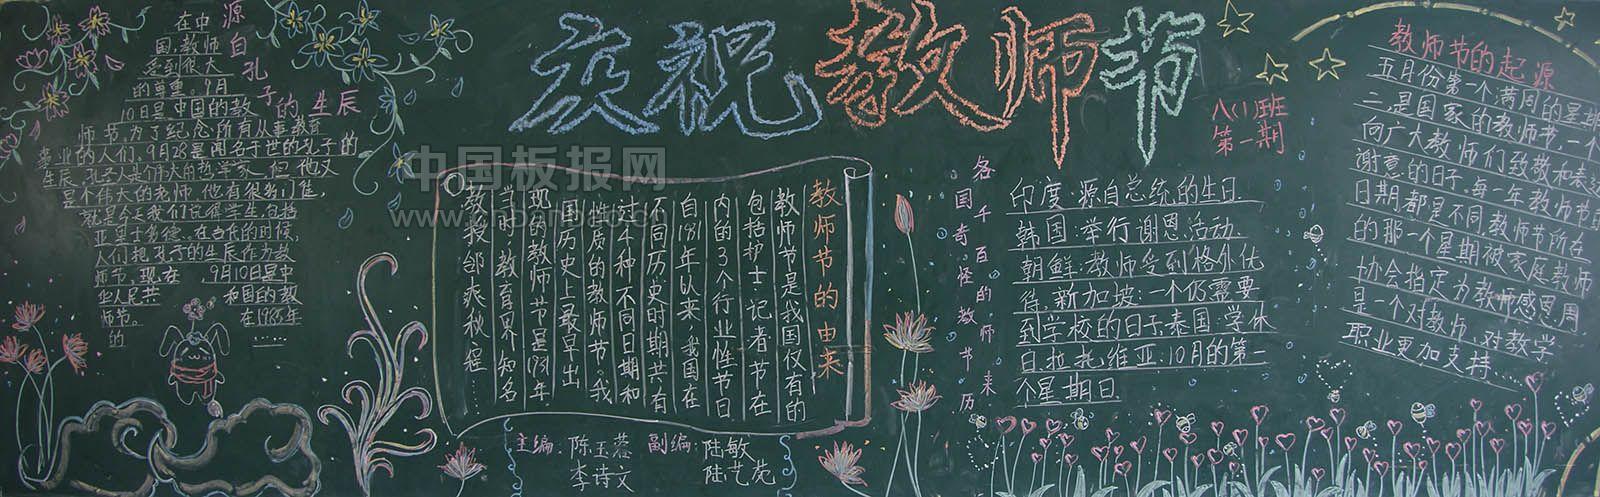 庆祝教师节
八(1)班
第一期
源自孔子的生辰
在中
国,教师
受到很大
的尊重。9月
10日是中国的教
师节,为了纪念所有从事教育
事业的人们。9月28是闻名于世的孔子的
生辰,孔圣人是伟大的哲学家,但他又
是个伟大的老师,他有很多门徒,
就是今天我们说得学生,包括
亚里士多德。在古代的时候,
人们把孔子的生辰作为教
师节,现在 9月10日是中
华人民共 和国的教
师节。 在1985年
的 ……
教师节的由来
教师节是我国仅有的
包括护士、记者节在
内的3个行业性节日
自1931年以来,我国在
不同历史时期共有
过4种不同日期和
性质的教师节。我
国历史上最早出
现的教师节是1931年
学时,教育界知名
教授邰爽秋、程…
主编: 陈玉
李诗文
副编: 陆敏
陆艺苑
各国千奇百怪的教师节来历
印度:源自总统的生日
韩国:举行谢恩活动.
朝鲜:教师受到格外优
待.新加坡:一个仍需要
到学校的日子.泰国:学休
日.拉托维亚:10月的第一
个星期日.
教师节的起源
五月份第一个满周的星期
二,是国家的教师节,一个
向广大教师们致敬和表达
谢意的日子,每一年教师节的
日期都是不同教师节所在
的那一个星期被家庭教师
协会指定为教师感恩周.
是一个对教师,对教学
职业更加支持
中国板报网
www.cnbanbao.cn